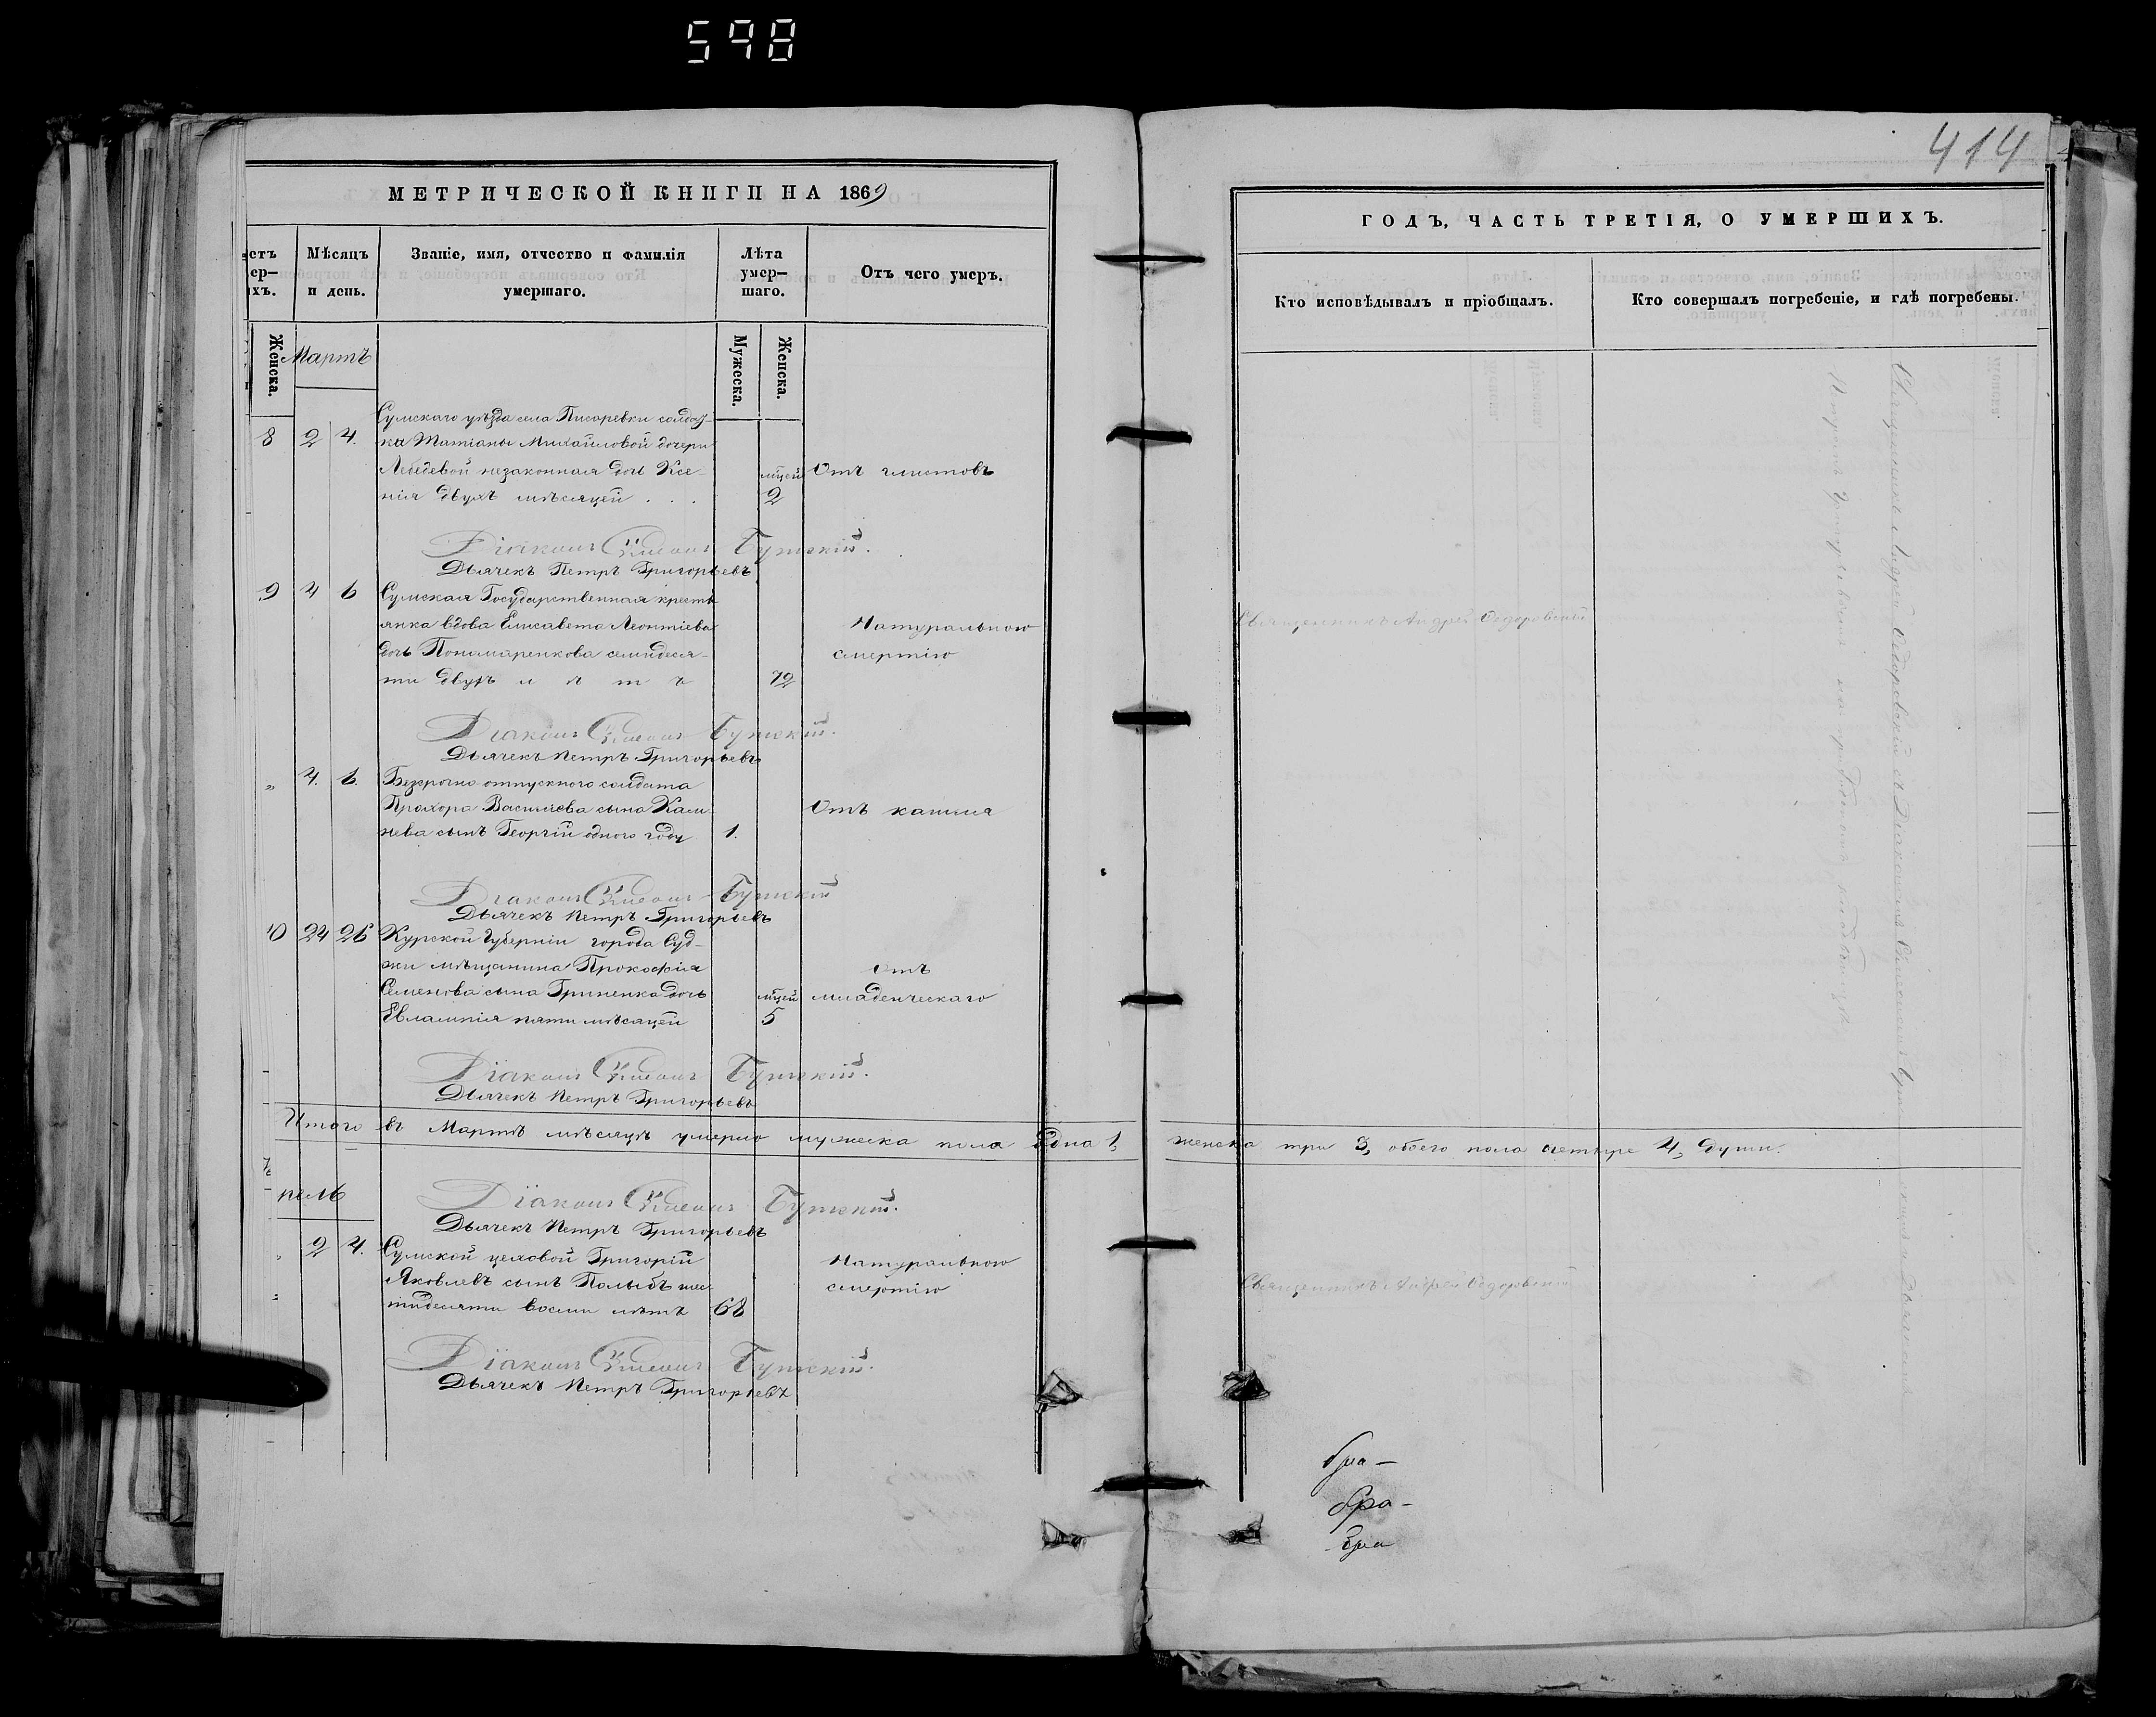 598
414
МЕТРИЧЕСКОЙ КНИГИ НА 1869
ГОДЪ, ЧАСТЬ ТРЕТІЯ, О УМЕРШИХЪ.
Мѣсяцъ и день.
Званіе, имя, отчество и фамилія умершаго.
Лѣта умер—шаго.
Отъ чего умеръ.
Кто исповѣдывалъ и пріобщалъ.
Кто совершалъ погребеніе, и гдѣ погребены.
Женска.
Мартъ
Мужеска.
Женска.
Сумскаго уѣзда села Писаревки солдат-
8 2 4. ка Татіаны Михайловой дочери
Лебедевой незаконная дочь Ксе- мцей Отъ глистовъ
нія двухъ мѣсяцей . . . 2
Діаконъ Симеонъ Бутскій.
Дьячекъ Петръ Григорьевъ
9 4 6 Сумская Государственная кресть
янка вдова Елисавета Леонтіева Натуральною Священникъ Андрей Ѳедоровскій
дочь Пономаренкова семидеся- смертію
ти двухъ лѣтъ 72
Діаконъ Симеонъ Бутскій.
Дьячекъ Петръ Григорьевъ
„ 4. 6. Безсрочно отпускного солдата
Прохора Васильева сына Кам- Отъ кашля
нева сынъ Георгій одного году 1.
Діаконъ Симеонъ Бутскій
Дьячекъ Петръ Григорьевъ
10 24 26 Курской Губерніи города Суд-
жи мѣщанина Прокофія Отъ
Семенова сына Гриненка дочь мцей младенческаго
Евлампія пяти мѣсяцей 5
Діаконъ Симеонъ Бутскій.
Дьячекъ Петръ Григорьевъ
Итого въ Мартѣ мѣсяцѣ умерло мужеска пола одна 1, женска три 3, обоего пола четыре 4, души.
рель
Діаконъ Симеонъ Бутскій.
Дьячекъ Петръ Григорьевъ
2 4. Сумской цеховой Григорій Натуральною
Яковлевъ сынъ шес- смертію Священникъ Андрей Ѳедоровскій
тидесяти восьми лѣтъ 68
Діаконъ Симеонъ Бутскій.
Дьячекъ Петръ Григорьевъ